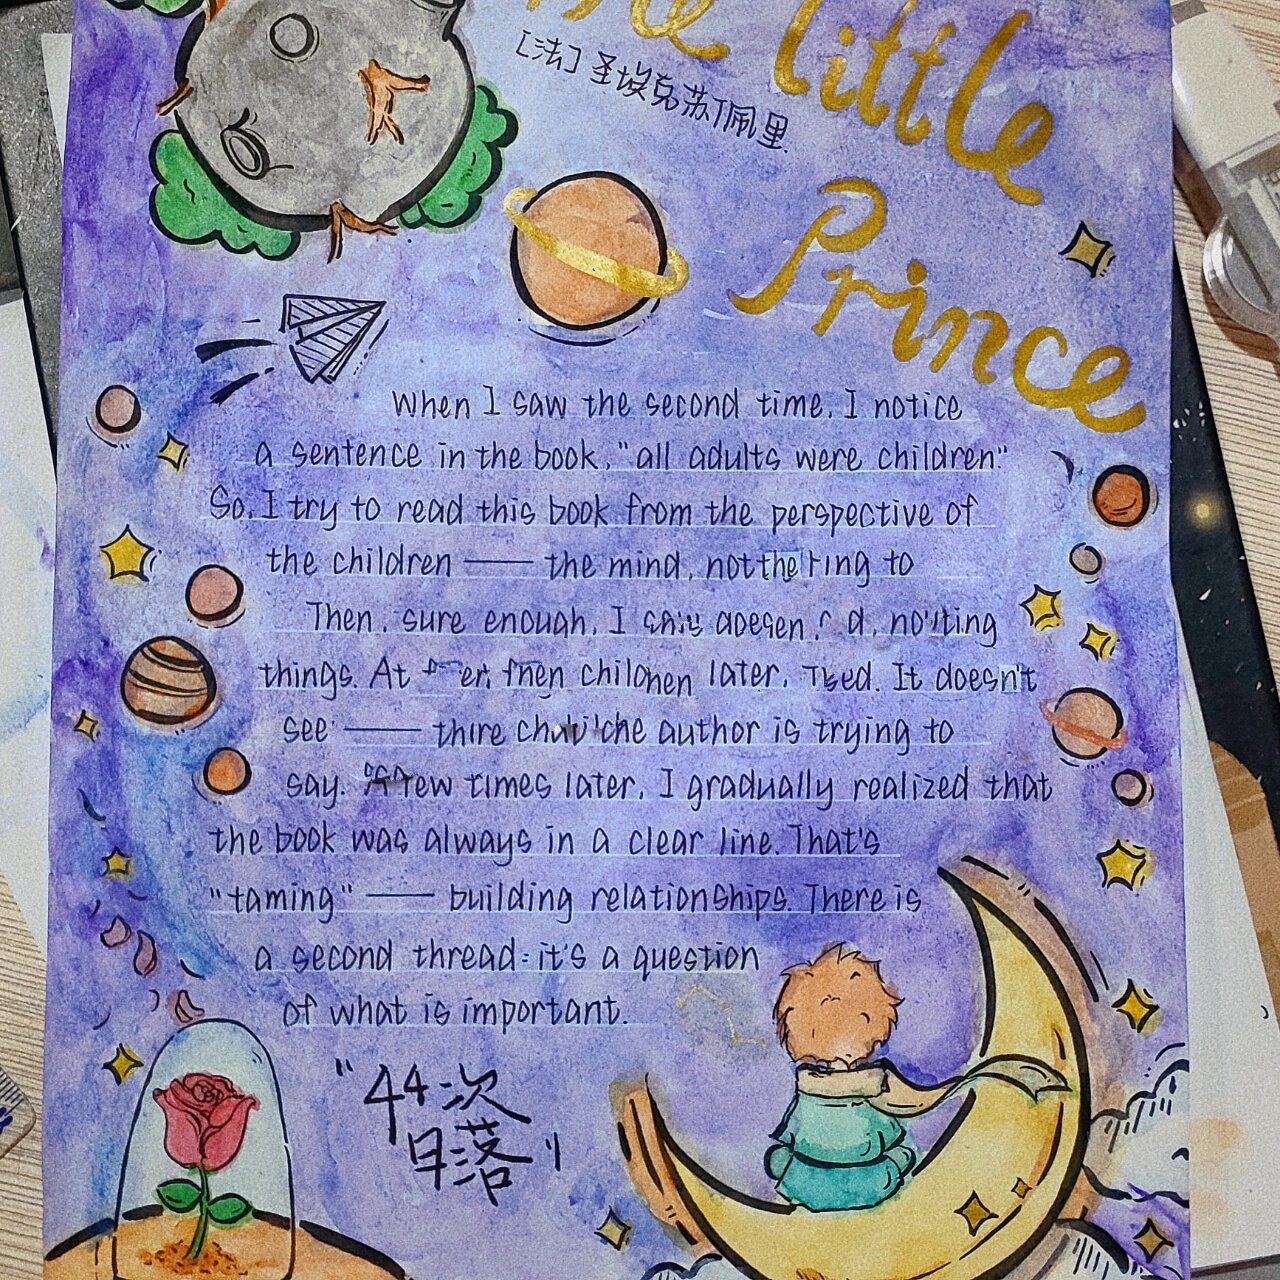 The little
[法]圣埃克苏佩里
Prince
When I saw the second time, I notice
a sentence in the book, "all adults were children."
So, I try to read this book from the perspective of
the children —— the mind, not to
Then, sure enough, I
things. At later, It doesn't
see —— the author is trying to
say. few times later, I gradually realized that
the book was always in a clear line. That's
"taming" —— building relationships. There is
a second thread: it's a question
of what is important.
"44次
日落"